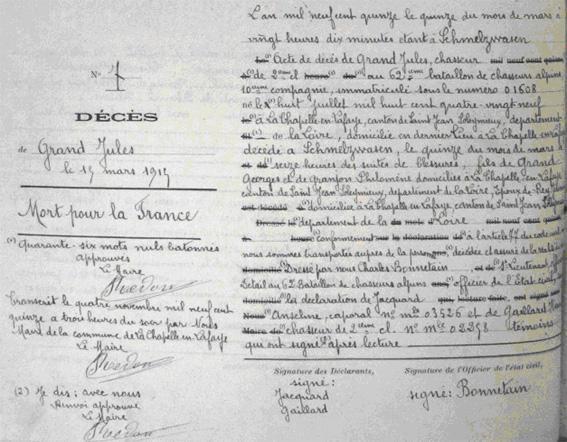 N° 1
DÉCÈS
de Grand Jules
le 15 mars 1915
Mort pour la France
(1) Quarante-six mots nuls batonnés
approuvés
Le Maire
Transcrit le quatre novembre mil neuf cent
quinze a trois heures du soir par Nous
Maire de la commune de la Chapelle en Lafaye
Le Maire
(2) Je dis: avec nous
Renvoi approuvé
Le Maire
L'an mil neuf cent quinze le quinze du mois de mars à
vingt heures dix minutes étant à Schmelzwasen
Acte de décès de Grand Jules, chasseur
de 2eme cl au 62eme bataillon de chasseurs alpins,
10eme compagnie, immatriculé sous le numero 01608
né le huit Juillet mil huit cent quatre-vingt neuf
à La Chapelle en Lafaye, canton de Saint Jean Soleymieux, département
de la Loire, domicilié en dernier lieu à La Chapelle en Lafaye
décédé à Schmelzwasen, le quinze du mois de mars
seize heures des suites de blessures, fils de Grand
Georges et de Philomène domiciliés à La Chapelle en Lafaye
canton de Saint Jean Soleymieux, département de la Loire, Epoux de
domiciliée à La Chapelle en Lafaye, canton de Saint Jean
département de la Loire
Conformément à l'article 77 du code
nous sommes transportés auprès de la personne décédée et assuré de la réalité
Dressé par nous Charles Bonnetain S. Lieutenant
au 62 Bataillon de chasseurs alpins officier de l'état civil
la déclaration de Jacquard
Anselme, caporal n° mle 03526 et de Gaillard
chasseur de 2eme cl. n° mle 02358 témoins
qui ont signé après lecture
Signature des Déclarants,
signé:
Jacquard
Gaillard
Signature de l'Officier de l'état civil,
signé: Bonnetain